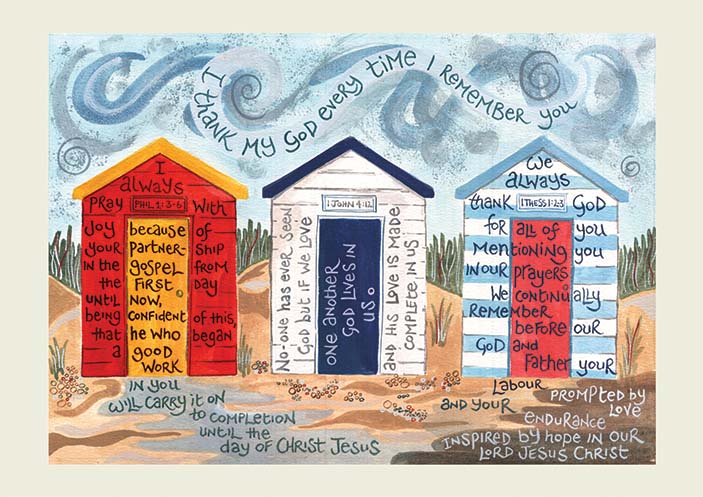 I thank my God every time I remember you
I
always
Pray PHIL 1:3-6 With
Joy because of
your Partner-ship
in the gospel from
the first day
until now,
being confident of this,
that he who began
a good
work
in you
will carry it on
to completion
until the
day of Christ Jesus
1 JOHN 4:12
No-one has ever seen
God but if we love
one another
God lives in
us.
and his love is made
complete in us
We
always
thank 1THESS 1:2-3 God
for all of you
mentioning you
in our prayers
We continually
remember
before our
God and
Father your
Labour prompted by
and your love
endurance
inspired by hope in our
Lord Jesus Christ